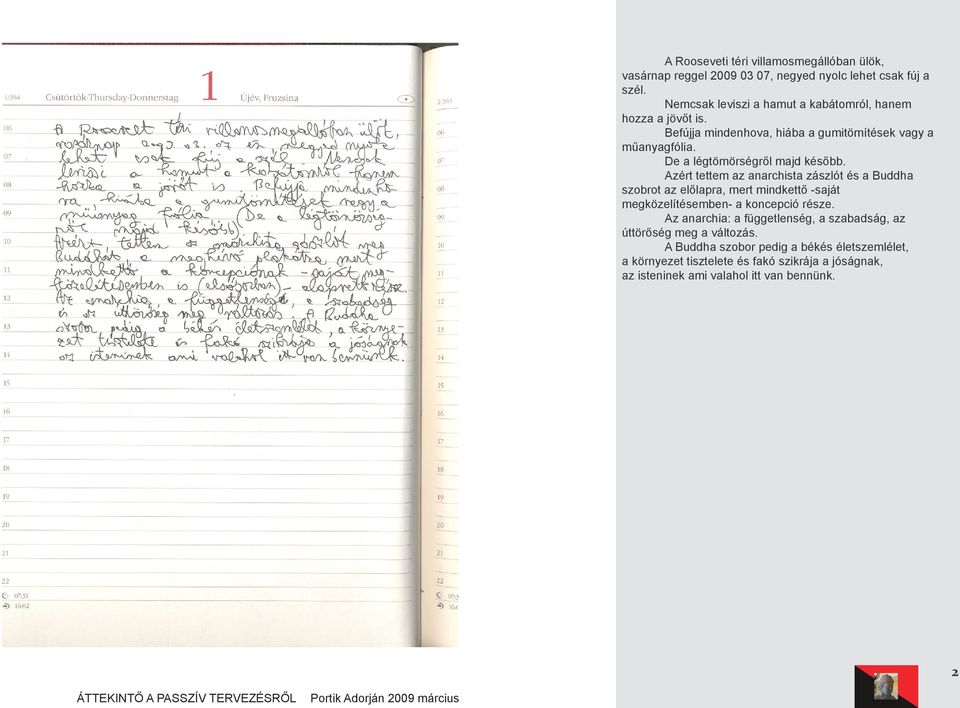 1/364 Csütörtök-Thursday-Donnerstag 1 Újév, Fruzsina
06 A Roosevelt téri villamosmegállóban ülök,
vasárnap 2009. 03. 07 és negyed nyolc
07 lehet csak fúj a szél. Nemcsak
leviszi a hamut a kabátomról hanem
08 hozza a jövőt is. Befújja mindenho-
va, hiába a gumitömítések vagy a
09 műanyag fólia (De a légtömörség-
ről majd később).
10 Azért tettem az anarchista zászlót meg
Buddhát, a meghívó plakátra mert
11 mindkettő a koncepciónak - saját meg-
közelítésemben is (elsősorban) -
12 Az anarchia, a függetlenség, a szabadság
és az úttörőség meg változás. A Buddha
13 szobor pedig a békés életszemlélet, a környe-
zet tisztelete és fakó szikrája a jóságnak
14 az isteninek ami valahol itt van bennünk.
15
16
17
18
19
20
21
22
07:31
16:02
2/363
06
07
08
09
10
11
12
13
14
15
16
17
18
19
20
21
22
A Rooseveti téri villamosmegállóban ülök,
vasárnap reggel 2009 03 07, negyed nyolc lehet csak fúj a
szél.
Nemcsak leviszi a hamut a kabátomról, hanem
hozza a jövőt is.
Befújja mindenhova, hiába a gumitömítések vagy a
műanyagfólia.
De a légtömörségről majd később.
Azért tettem az anarchista zászlót és a Buddha
szobrot az előlapra, mert mindkettő -saját
megközelítésemben- a koncepció része.
Az anarchia: a függetlenség, a szabadság, az
úttörőség meg a változás.
A Buddha szobor pedig a békés életszemlélet,
a környezet tisztelete és fakó szikrája a jóságnak,
az isteninek ami valahol itt van bennünk.
2
ÁTTEKINTŐ A PASSZÍV TERVEZÉSRŐL Portik Adorján 2009 március